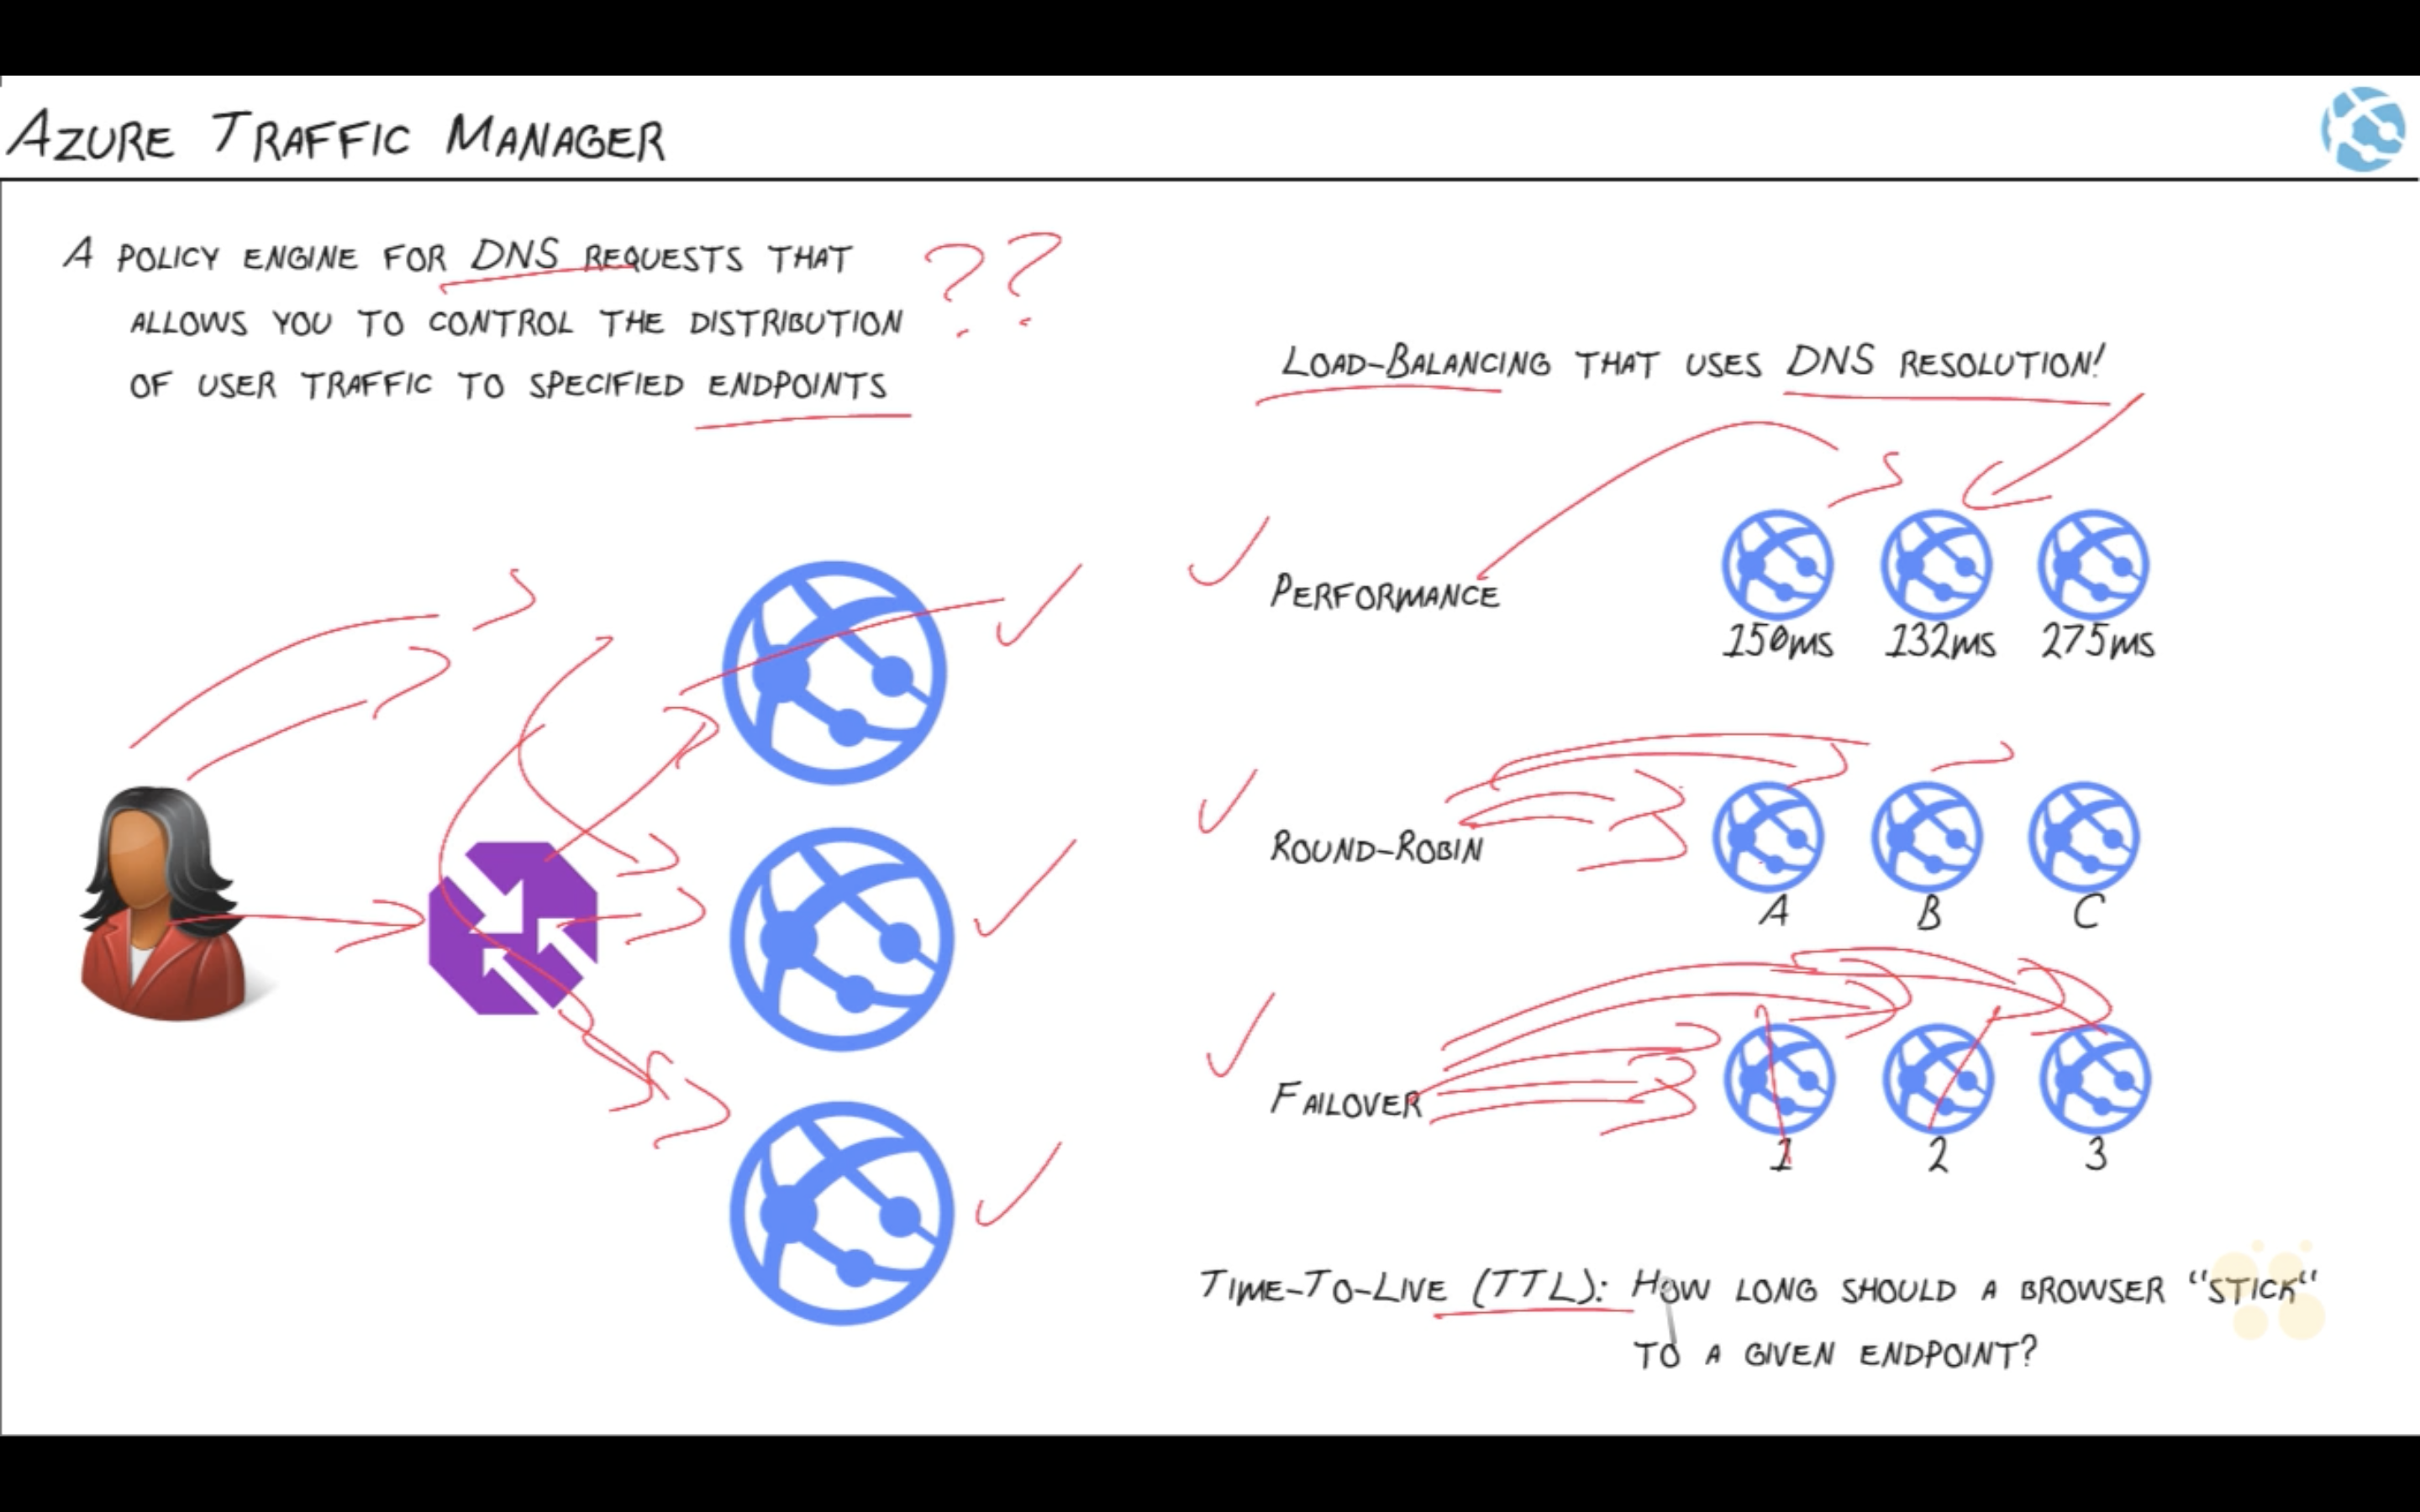 AZURE TRAFFIC MANAGER
A POLICY ENGINE FOR DNS REQUESTS THAT
ALLOWS YOU TO CONTROL THE DISTRIBUTION
OF USER TRAFFIC TO SPECIFIED ENDPOINTS
??
LOAD-BALANCING THAT USES DNS RESOLUTION!
PERFORMANCE
150ms 132ms 275ms
ROUND-ROBIN
A B C
FAILOVER
1 2 3
TIME-TO-LIVE (TTL): HOW LONG SHOULD A BROWSER “STICK“
TO A GIVEN ENDPOINT?